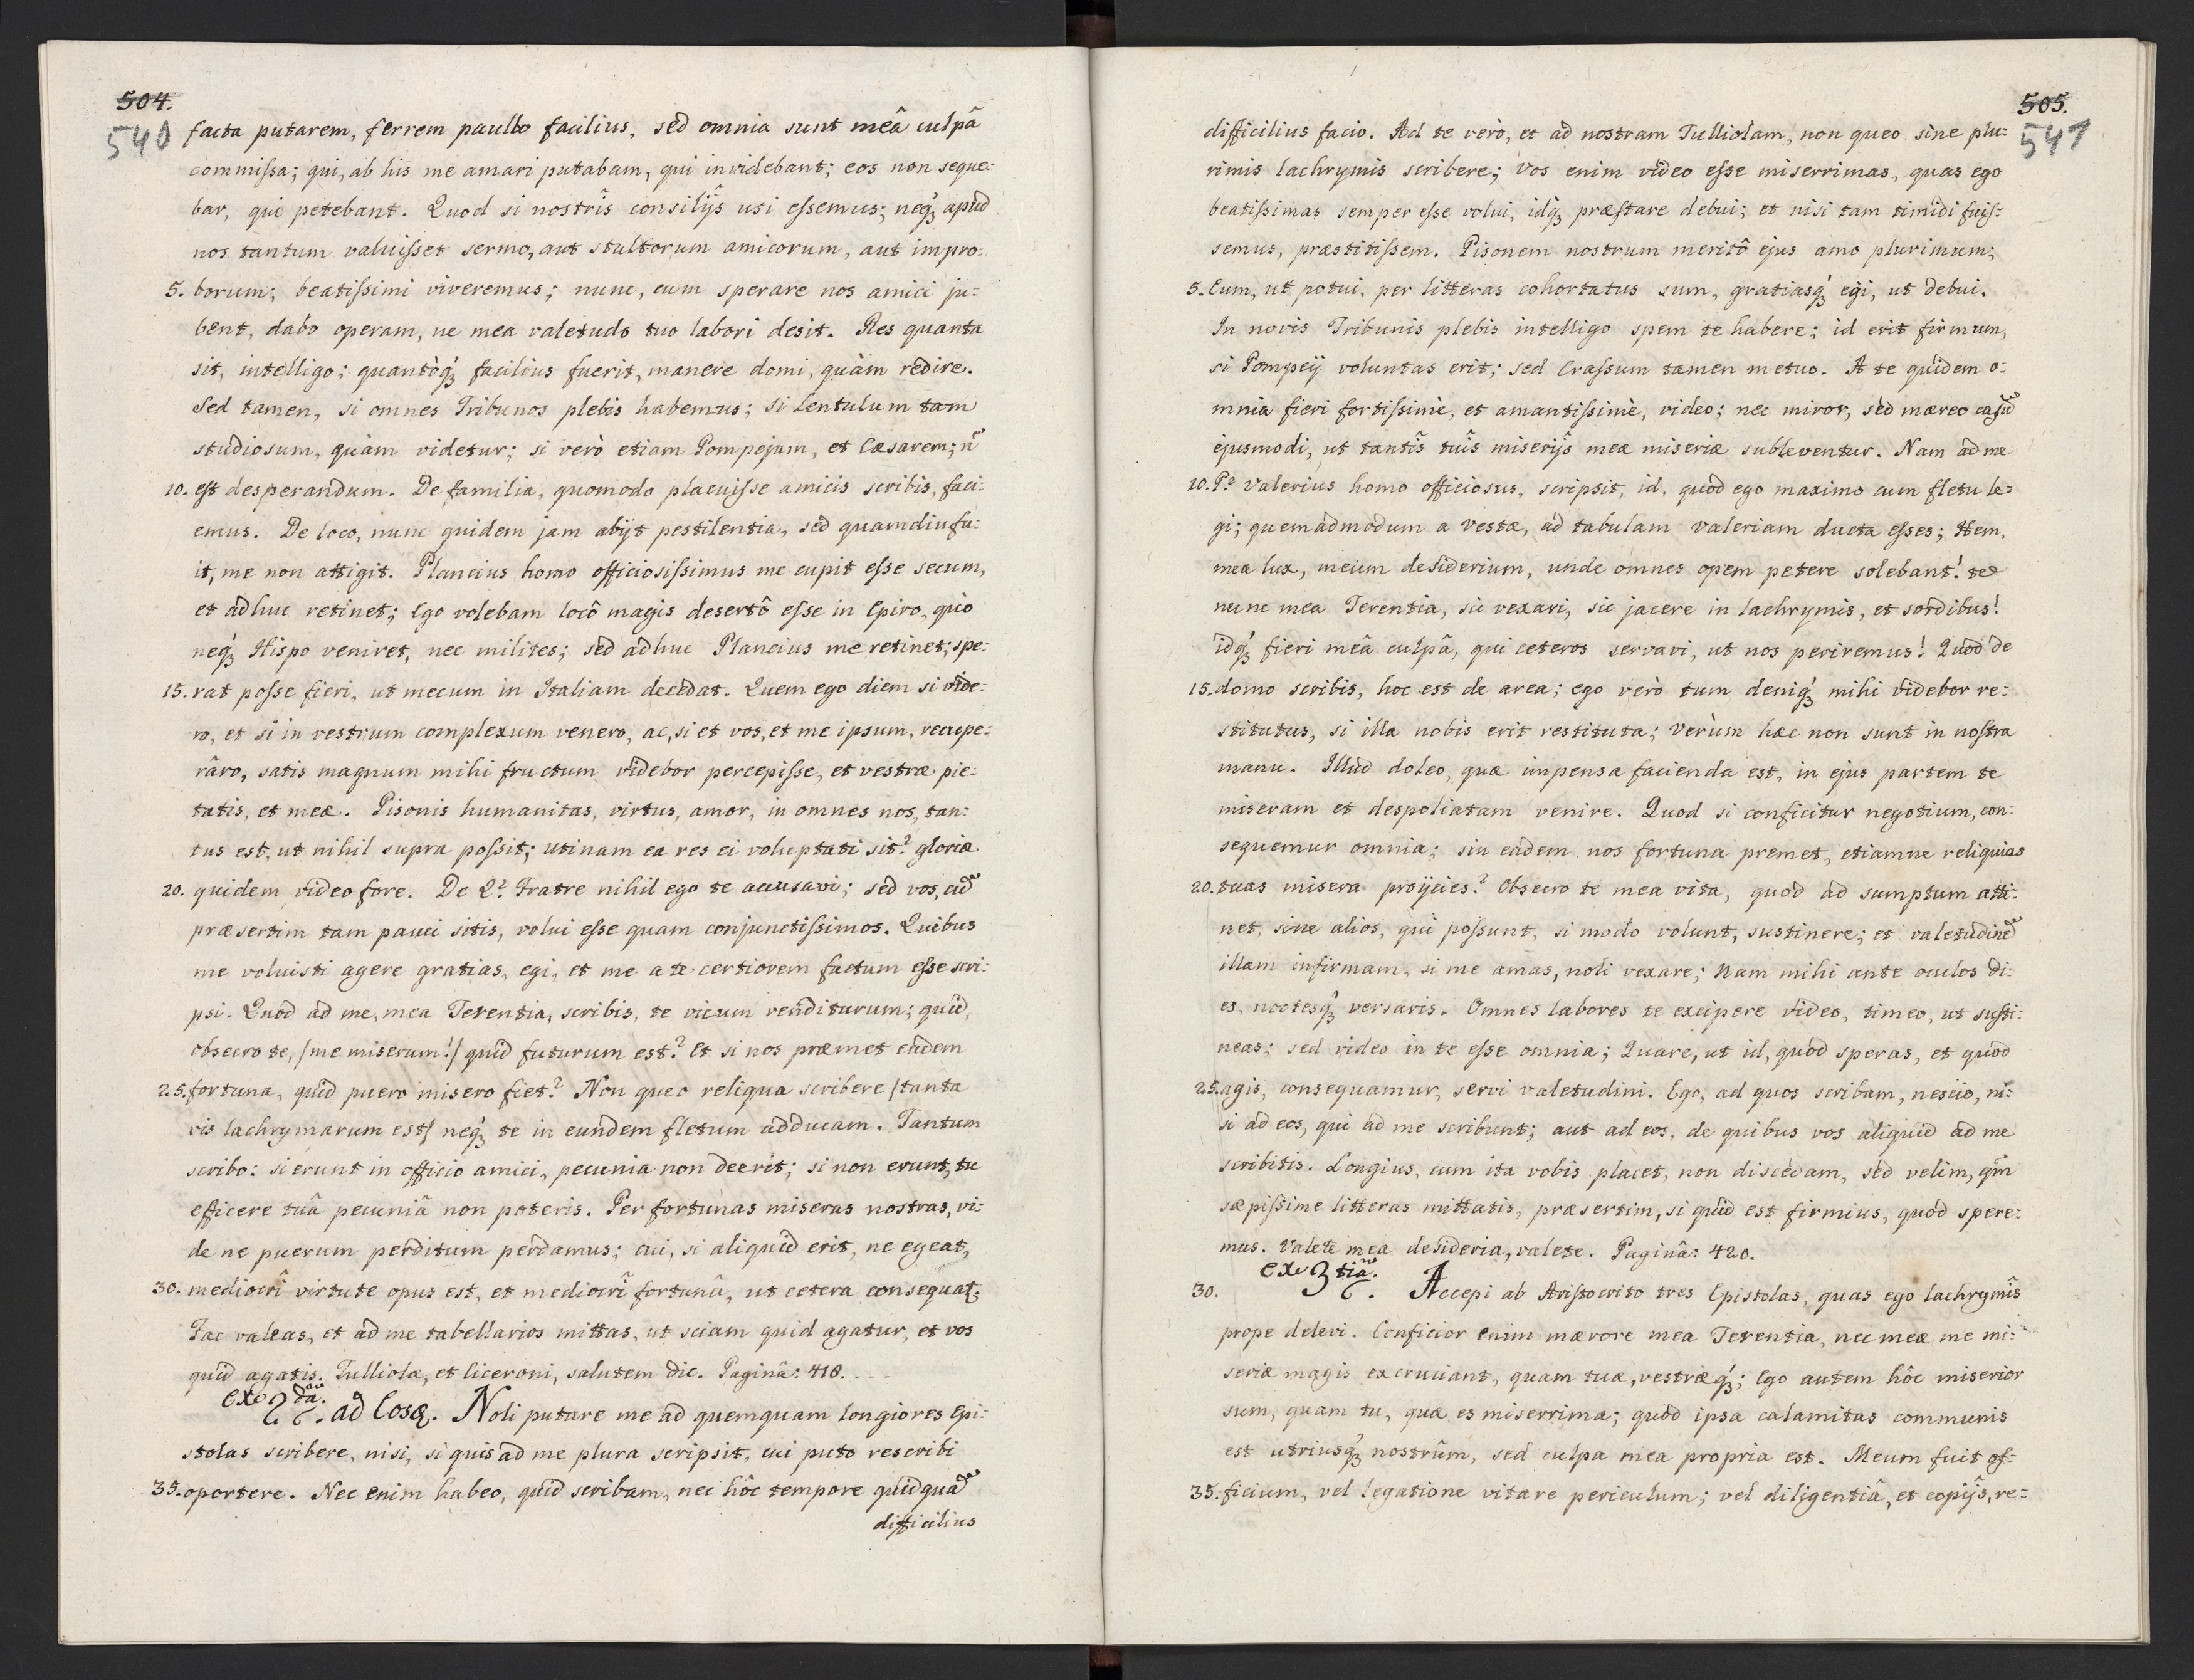 504.
540
facta putarem, ferrem paullo facilius, sed omnia sunt meâ culpâ
commissa; qui, ab his me amari putabam, qui invidebant; eos non seque=
bar, qui petebant. Quod si nostrîs consilijs usi essemus; neq́ꝫ apud
nos tantum valuisset sermo, aut stultorum amicorum, aut impro=
5. borum; beatissimi viveremus; nunc, cum sperare nos amici ju=
bent, dabo operam, ne mea valetudo tuo labori desit. Res quanta
sit, intelligo; quantòq́ꝫ facilius fuerit, manere domi, quàm redire.
Sed tamen, si omnes Tribunos plebis habemus; si Lentulum tam
studiosum, quàm videtur; si verò etiam Pompejum, et Cæsarem; n̄
10. est desperandum. De familia, quomodo placuisse amicis scribis, faci=
emus. De loco, nunc quidem jam abijt pestilentia, sed quamdiu fu=
it, me non attigit. Plancius homo officiosissimus me cupit esse secum,
et adhuc retinet; Ego volebam locô magis desertô esse in Epiro, quò
neq́ꝫ Hispo veniret, nec milites; sed adhuc Plancius me retinet; spe=
15. rat posse fieri, ut mecum in Italiam decedat. Quem ego diem si vide=
ro, et si in vestrum complexum venero, ac, si et vos, et me ipsum, recupe=
râro, satis magnum mihi fructum videbor percepisse, et vestræ pie=
tatis, et meæ. Pisonis humanitas, virtus, amor, in omnes nos, tan=
tus est, ut nihil supra possit; utinam ea res ei voluptati sit? gloriæ
20. quidem video fore. De Q? Fratre nihil ego te accusavi; sed vos, cū
præsertim tam pauci sitis, volui esse quam conjunctissimos. Quibus
me voluisti agere gratias, egi, et me a te certiorem factum esse scri=
psi. Quod ad me, mea Terentia, scribis, te vicum vendituram; quid,
obsecro te, /me miseram!/ quid futurum est? Et si nos præmet eadem
25. fortuna, quid puero misero fiet? Non queo reliqua scribere /tanta
vis lachrymarum est/ neq́ꝫ te in eundem fletum adducam. Tantum
scribo: si erunt in officio amici, pecunia non deerit; si non erunt, tu
efficere tuâ pecuniâ non poteris. Per fortunas miseras nostras, vi=
de ne puerum perditum perdamus; cui, si aliquid erit, ne egeat,
30. mediocrî virtute opus est, et mediocrî fortunâ, ut cetera consequat.
Fac valeas, et ad me tabellarios mittas, ut sciam quid agatur, et vos
quid agatis. Tulliolæ, et Ciceroni, salutem dic. Paginâ: 418.
ex 2da. ad Eosꝗ. Noli putare me ad quemquam longiores Epi=
stolas scribere, nisi, si quis ad me plura scripsit, cui puto rescribi
35. oportere. Nec enim habeo, quid scribam, nec hôc tempore quidquā
difficilius
505.
541
difficilius facio. Ad te verò, et ad nostram Tulliolam, non queo sine plu=
rimis lachrymis scribere; Vos enim video esse miserrimas, quas ego
beatissimas semper esse volui, idq́ꝫ præstare debui; et nisi tam timidi fuis=
semus, præstitissem. Pisonem nostrum meritô ejus amo plurimum;
5. Eum, ut potui, per litteras cohortatus sum, gratiasq́ꝫ egi, ut debui.
In novis Tribunis plebis intelligo spem te habere; id erit firmum,
si Pompeij voluntas erit; sed Crassum tamen metuo. A te quidem o=
mnia fieri fortissimè, et amantissimè, video; nec miror, sed mæreo casū
ejusmodi, ut tantîs tuîs miserijs meæ miseriæ subleventur. Nam ad me
10. P? Valerius homo officiosus, scripsit, id, quod ego maximo cum fletu le=
gi; quemadmodum a Vestæ, ad tabulam Valeriam ducta esses; Hem,
mea lux, meum desiderium, unde omnes opem petere solebant! te
nunc mea Terentia, sic vexari, sic jacere in lachrymis, et sordibus!
idq́ꝫ fieri meâ culpâ, qui ceteros servavi, ut nos periremus! Quod de
15. domo scribis, hoc est de area; ego verò tum deniq́ꝫ mihi videbor re=
stitutus, si illa nobis erit restituta; Verùm hæc non sunt in nostra
manu. Illud doleo, quæ impensa facienda est, in ejus partem te
miseram et despoliatam venire. Quod si conficitur negotium, con=
sequemur omnia; sin eadem nos fortuna premet, etiamne reliquias
20. tuas misera proijcies? Obsecro te mea vita, quod ad sumptum atti=
net, sine alios, qui possunt, si modo volunt, sustinere; et valetudinē
illam infirmam, si me amas, noli vexare; Nam mihi ante oculos di=
es, noctesq́ꝫ versaris. Omnes labores te excipere video, timeo, ut susti=
neas; sed video in te esse omnia; Quare, ut id, quod speras, et quod
25. agis, consequamur, servi valetudini. Ego, ad quos scribam, nescio, ni=
si ad eos, qui ad me scribunt; aut ad eos, de quibus vos aliquid ad me
scribitis. Longius, cum ita vobis placet, non discedam, sed velim, qm̄
sæpissime litteras mittatis, præsertim, si quid est firmius, quod spere=
mus. Valete mea desideria, valete. Paginâ: 420.
ex 3tia.
30. Accepi ab Aristocrito tres Epistolas, quas ego lachrymîs
prope delevi. Conficior enim mærore mea Terentia, nec meæ me mi=
seriæ magis excruciant, quam tuæ, vestræq́ꝫ; Ego autem hôc miserior
sum, quam tu, quæ es miserrima; quòd ipsa calamitas communis
est utriusq́ꝫ nostrûm, sed culpa mea propria est. Meum fuit of=
35. ficium, vel legatione vitare periculum; vel diligentiâ, et copijs, re=